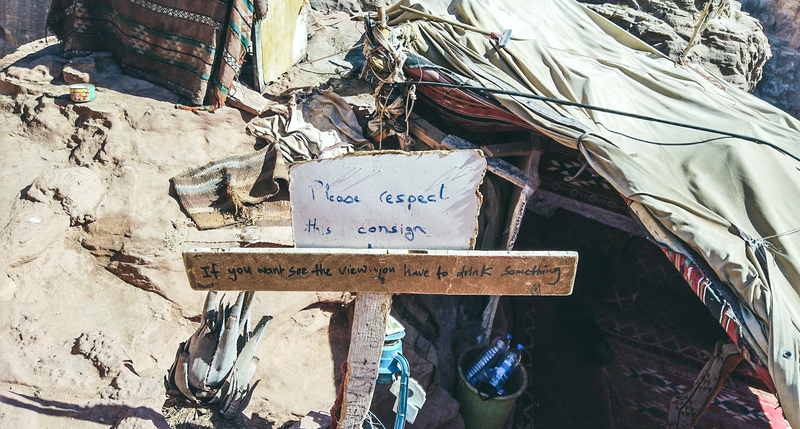 Please respect
this consign
If you want see the view you have to drink something